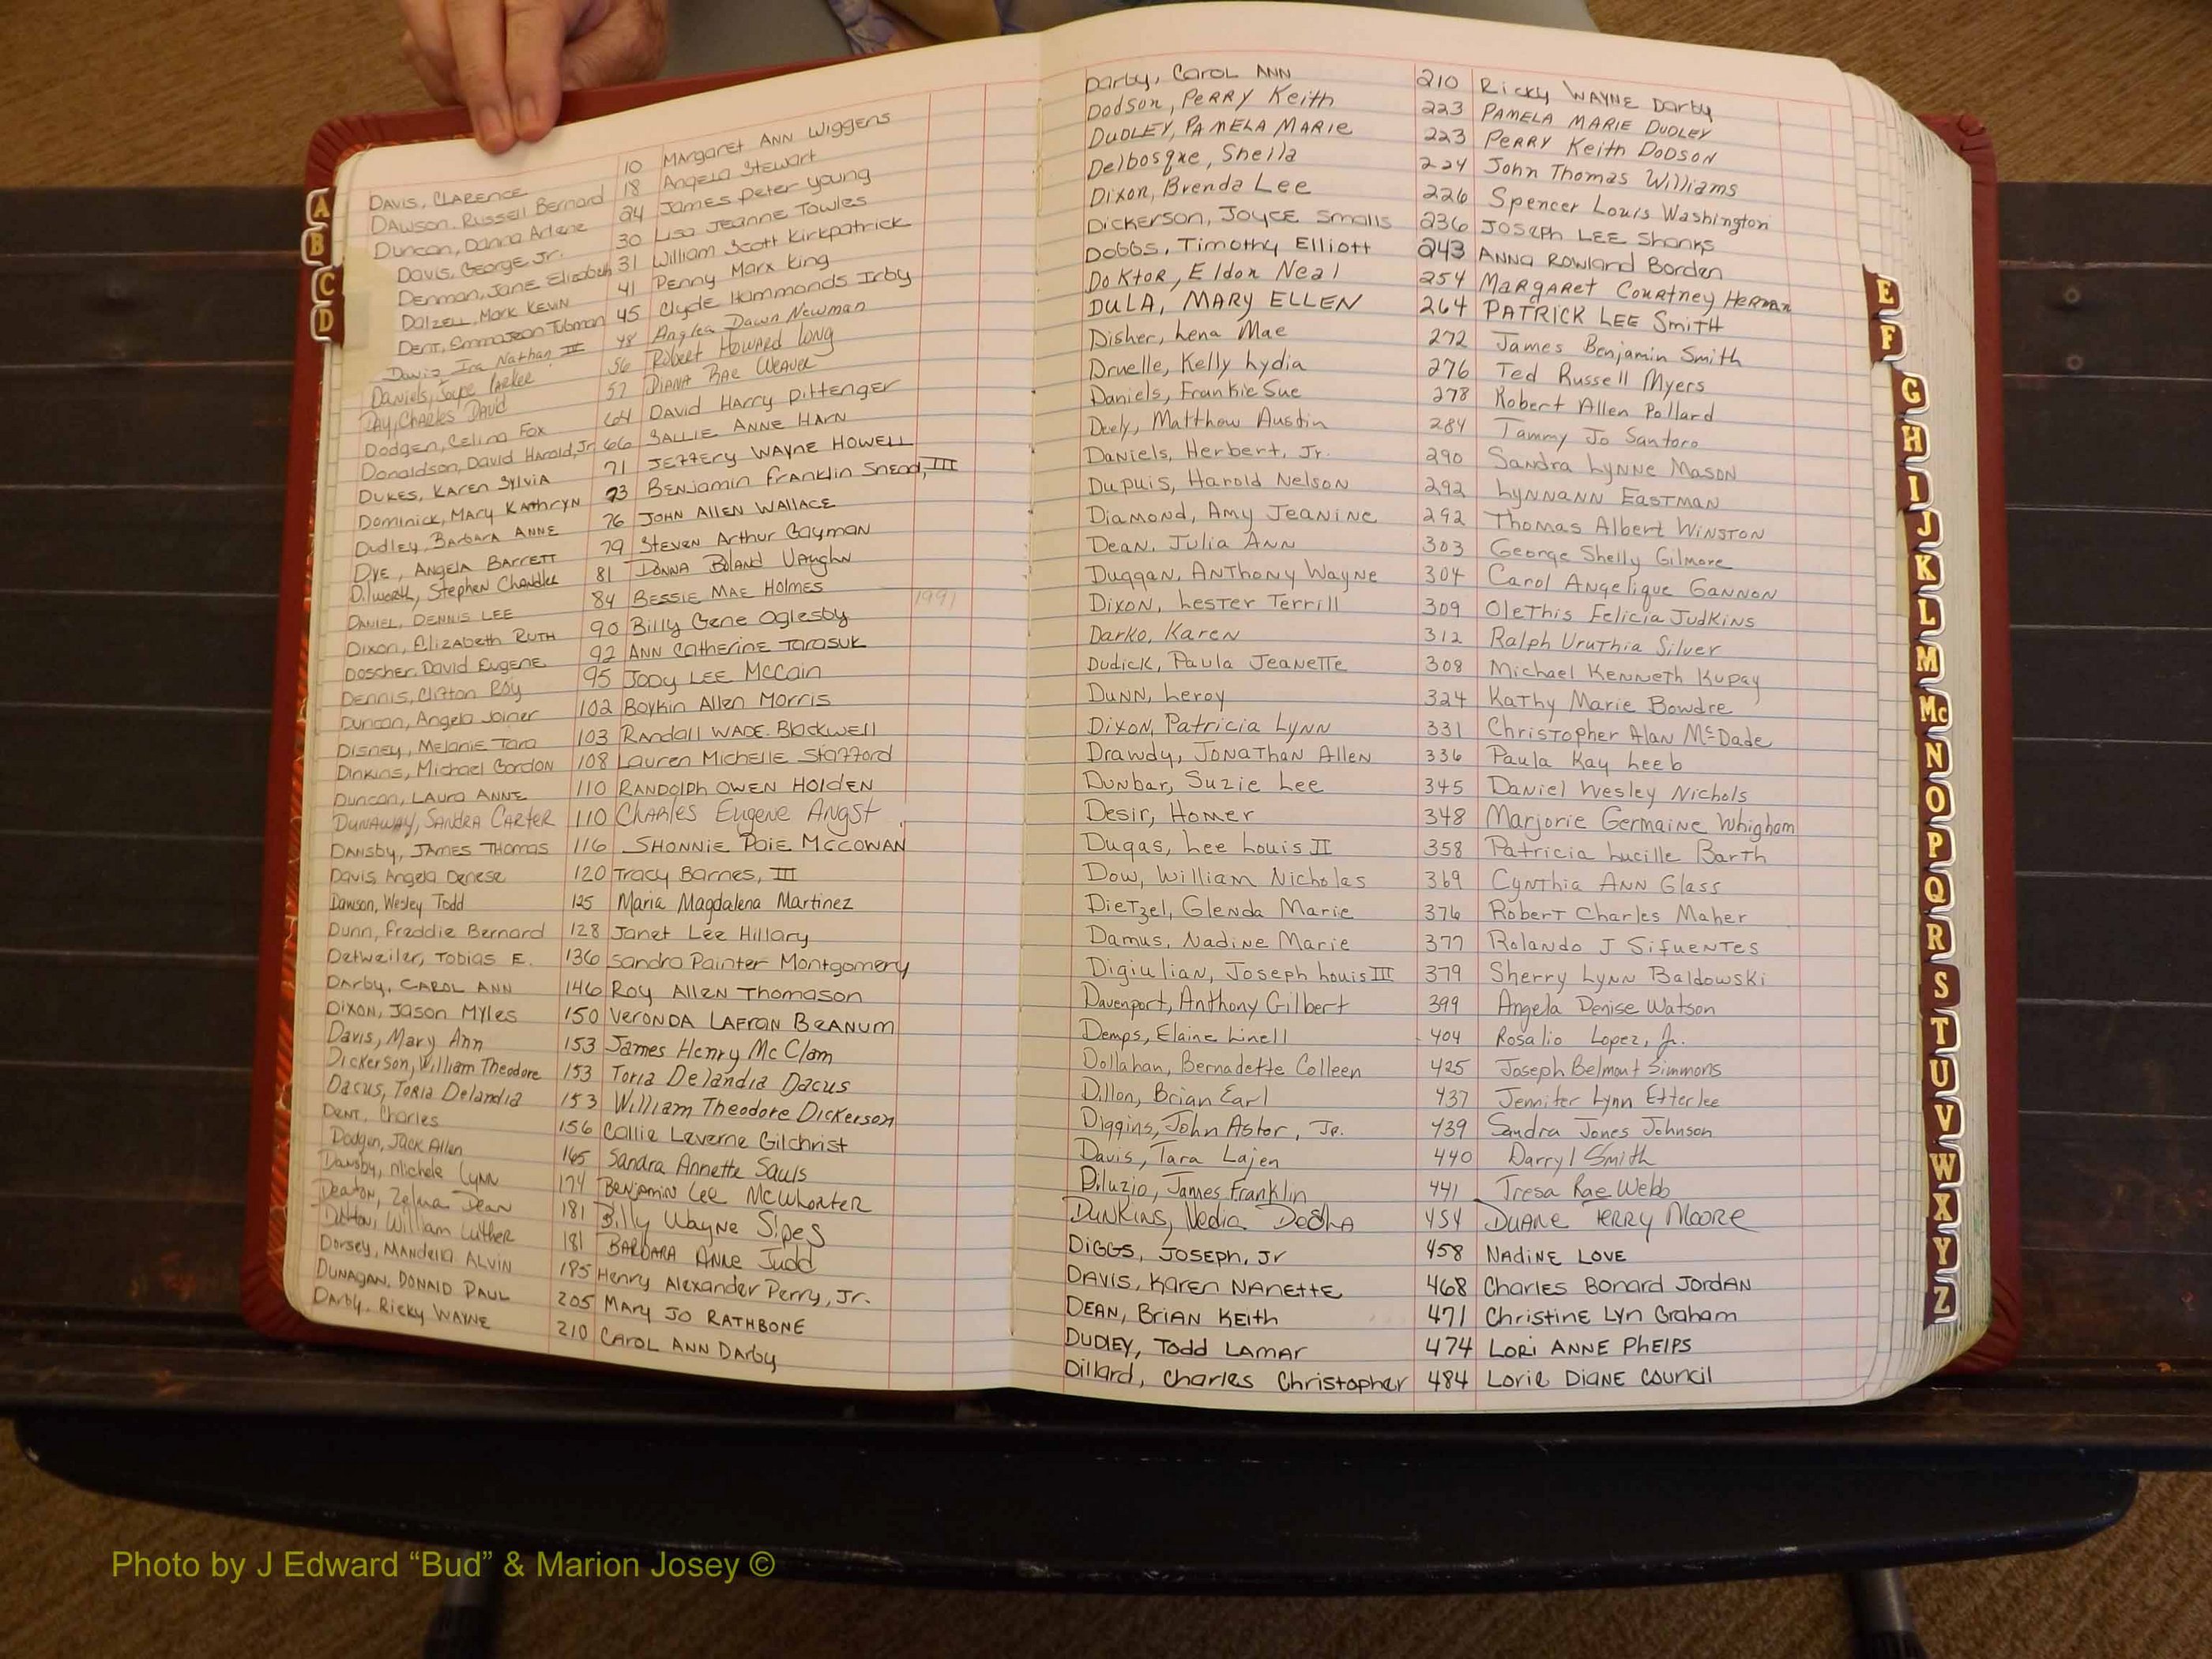 DAVIS, CLARENCE 10 Margaret ANN Wiggens
DAWSON, Russell Bernard 18 Angela Stewart
Duncan, Danna Arlene 24 James Peter Young
Davis, George Jr. 30 Lisa Jeanne Towles
Denman, Jane Elizabeth 31 William Scott Kirkpatrick
Dalzell, Mark Kevin 41 Penny Marx King
Dent, Emma Jean Tubman 45 Clyde Hammonds Irby
Davis Ira Nathan III 48 Anglea Dawn Newman
Daniels, Joyce Parker 56 Robert Howard Long
Day, Charles David 57 Diana Rae Weaver
Dodgen, Celina Fox 64 David Harry Pittenger
Donaldson, David Harold, Jr 66 SALLIE ANNE HARN
DUKES, KAREN SYLVIA 71 JEFFERY WAYNE HOWELL
Dominick, Mary Kathryn 73 Benjamin Franklin Snead, III
Dudley, Barbara ANNE 76 JOHN ALLEN WALLACE
DYE, ANGELA BARRETT 79 Steven Arthur Gayman
Dilworth, Stephen Chandler 81 DONNA BOLAND VAUGHN
DANIEL, DENNIS LEE 84 BESSIE MAE HOLMES 1991
Dixon, Elizabeth RUTH 90 Billy Gene Oglesby
Doscher, David Eugene 92 ANN Catherine Tarasuk
Dennis, Clifton Roy 95 Jody LEE McCain
Duncan, Angela Joiner 102 Boykin Allen Morris
Disney, Melanie Tara 103 Randall WADE Blackwell
Dinkins, Michael Gordon 108 Lauren Michelle Stafford
Duncan, Laura ANNE 110 RANDOLPH OWEN HOLDEN
DUNAWAY, SANDRA CARTER 110 Charles Eugene Angst
DANSBY, JAMES THOMAS 116 SHONNIE PAIE McCOWAN
Davis Angela Denese 120 Tracy Barnes, III
Dawson, Wesley Todd 125 Maria Magdalena Martinez
Dunn, Freddie Bernard 128 Janet Lee Hillary
Detweiler, Tobias E. 136 Sandra Painter Montgomery
Darby, CAROL ANN 146 Roy Allen Thomason
Dixon, Jason Myles 150 VERONDA LAFRAN BEANUM
Davis, Mary Ann 153 James Henry McClam
Dickerson, William Theodore 153 Toria Delandia Dacus
Dacus, Toria Delandia 153 William Theodore Dickerson
Dent, Charles 156 Collie Laverne Gilchrist
Dodgen, Jack Allen 165 Sandra Annette Sauls
Dansby, Michele Lynn 174 Benjamin Lee McWhorter
Deaton, Zelma Dean 181 Billy Wayne Sipes
William Luther 181 BARBARA Anne Judd
Dorsey, Mandella Alvin 185 Henry Alexander Perry, Jr.
DUNAGAN, DONALD PAUL 205 MARY JO RATHBONE
Darby, Ricky WAYNE 210 CAROL ANN Darby
Darby, Carol ANN 210 Ricky WAYNE Darby
Dodson, Perry Keith 223 PAMELA MARIE DUDLEY
DUDLEY, PAMELA MARIE 223 PERRY Keith DODSON
Delbosque, Shella 224 John Thomas Williams
Dixon, Brenda Lee 226 Spencer Louis Washington
Dickerson, Joyce Smalls 236 Joseph LEE Shanks
DOBBS, Timothy Elliott 243 ANNA Rowland Borden
DoKtoR, Eldon Neal 254 Margaret Courtney Herman
DULA, MARY ELLEN 264 PATRICK LEE Smith
Disher, Lena Mae 272 James Benjamin Smith
Druelle, Kelly Lydia 276 Ted Russell Myers
Daniels, Frankie Sue 278 Robert Allen Pollard
Deely, Matthew Austin 284 Tammy Jo Santoro
Daniels, Herbert, Jr. 290 Sandra Lynne Mason
Dupuis, Harold Nelson 292 LYNNANN EASTMAN
Diamond, Amy Jeanine 292 Thomas Albert WINSTON
Dean, Julia Ann 303 George Shelly Gilmore
Duggan, Anthony Wayne 304 Carol Angelique GANNON
Dixon, Lester Terrill 309 Olethis Felicia Judkins
Darko, Karen 312 Ralph Uruthia Silver
Dudick, Paula Jeanette 308 Michael Kenneth Kupay
Dunn, Leroy 324 Kathy Marie Bowdre
Dixon, Patricia Lynn 331 Christopher Alan McDade
Drawdy, Jonathan Allen 336 Paula Kay Leeb
Dunbar, Suzie Lee 345 Daniel Wesley Nichols
Desir, Homer 348 Marjorie Germaine Whigham
Dugas, Lee Louis II 358 Patricia Lucille Barth
Dow, William Nicholas 369 Cynthia Ann Glass
Dietzel, Glenda Marie 376 Robert Charles Maher
Damus, Nadine Marie 377 Rolando J Sifuentes
Digiulian, Joseph Louis III 379 Sherry Lynn Baldowski
Davenport, Anthony Gilbert 399 Angela Denise Watson
Demps, Elaine Linell 404 Rosalio Lopez, Jr.
Dollahan, Bernadette Colleen 425 Joseph Belmont Simmons
Dillon, Brian Earl 437 Jennifer Lynn Etterlee
Diggins, John Astor, Jr. 439 Sandra Jones Johnson
Davis, Tara Lajen 440 Darryl Smith
Diluzio, James Franklin 441 Tresa Rae Webb
DUNKINS, Vedia DeSHA 454 DUANE TERRY MOORE
DiGGS, JOSEPH, Jr 458 NADINE LOVE
DAVIS, KAREN NANETTE 468 Charles Bonard JORDAN
DEAN, BRIAN KEITH 471 Christine Lyn Graham
DUDLEY, Todd LAMAR 474 LORI ANNE PHELPS
Dillard, Charles Christopher 484 LORIE DIANE COUNCIL
A
B
C
D
E
F
G
H
I
J
K
L
M
Mc
N
O
P
Q
R
S
T
U
V
W
X
Y
Z
Photo by J Edward “Bud” & Marion Josey ©